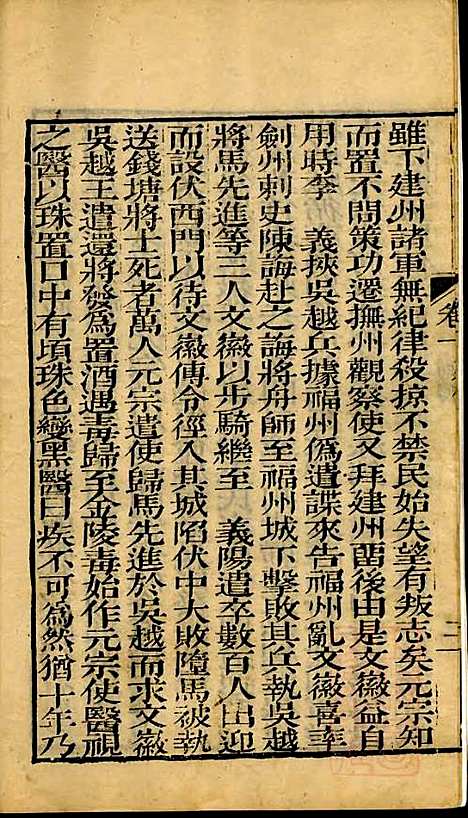 雖下建州諸軍無紀律殺掠不禁民始失望有叛志矣元宗知
而置不問策功遷撫州觀察使又拜建州畱後由是文徽益自
用時李 義挾吳越兵據福州偽遣諜來告福州亂文徽喜率
劍州刺史陳誨赴之誨將舟師至福州城下擊敗其兵執吳越
將馬先進等三人文徽以步騎繼至 義陽遣卒數百人出迎
而設伏西門以待文徽傳令徑入其城陷伏中大敗墮馬被執
送錢塘將士死者萬人元宗遣使歸馬先進於吳越而求文徽
吳越王遣還將發為置酒遇毒歸至金陵毒始作元宗使醫視
之醫以珠置口中有頃珠色變黑醫曰疾不可為然猶十年乃
卷一
二